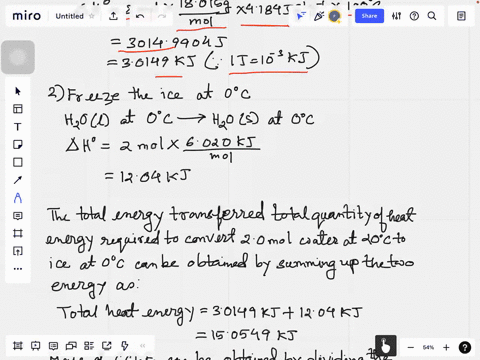 miro Untitled Share
18.0169 × 4.184J
mol
= 3014.9904J
= 3.0149 KJ (∵ 1J=10⁻³ KJ)
2) Freeze the ice at 0°C
H₂O(l) at 0°C → H₂O(s) at 0°C
ΔH° = 2 mol × 6.020 KJ
mol
= 12.04 KJ
The total energy transferred total quantity of heat
energy required to convert 2.0 mol water at 20°C to
ice at 0°C can be obtained by summing up the two
energy as:
Total heat energy = 3.0149 KJ + 12.04 KJ
= 15.0549 KJ
can be obtained by dividing the
54%